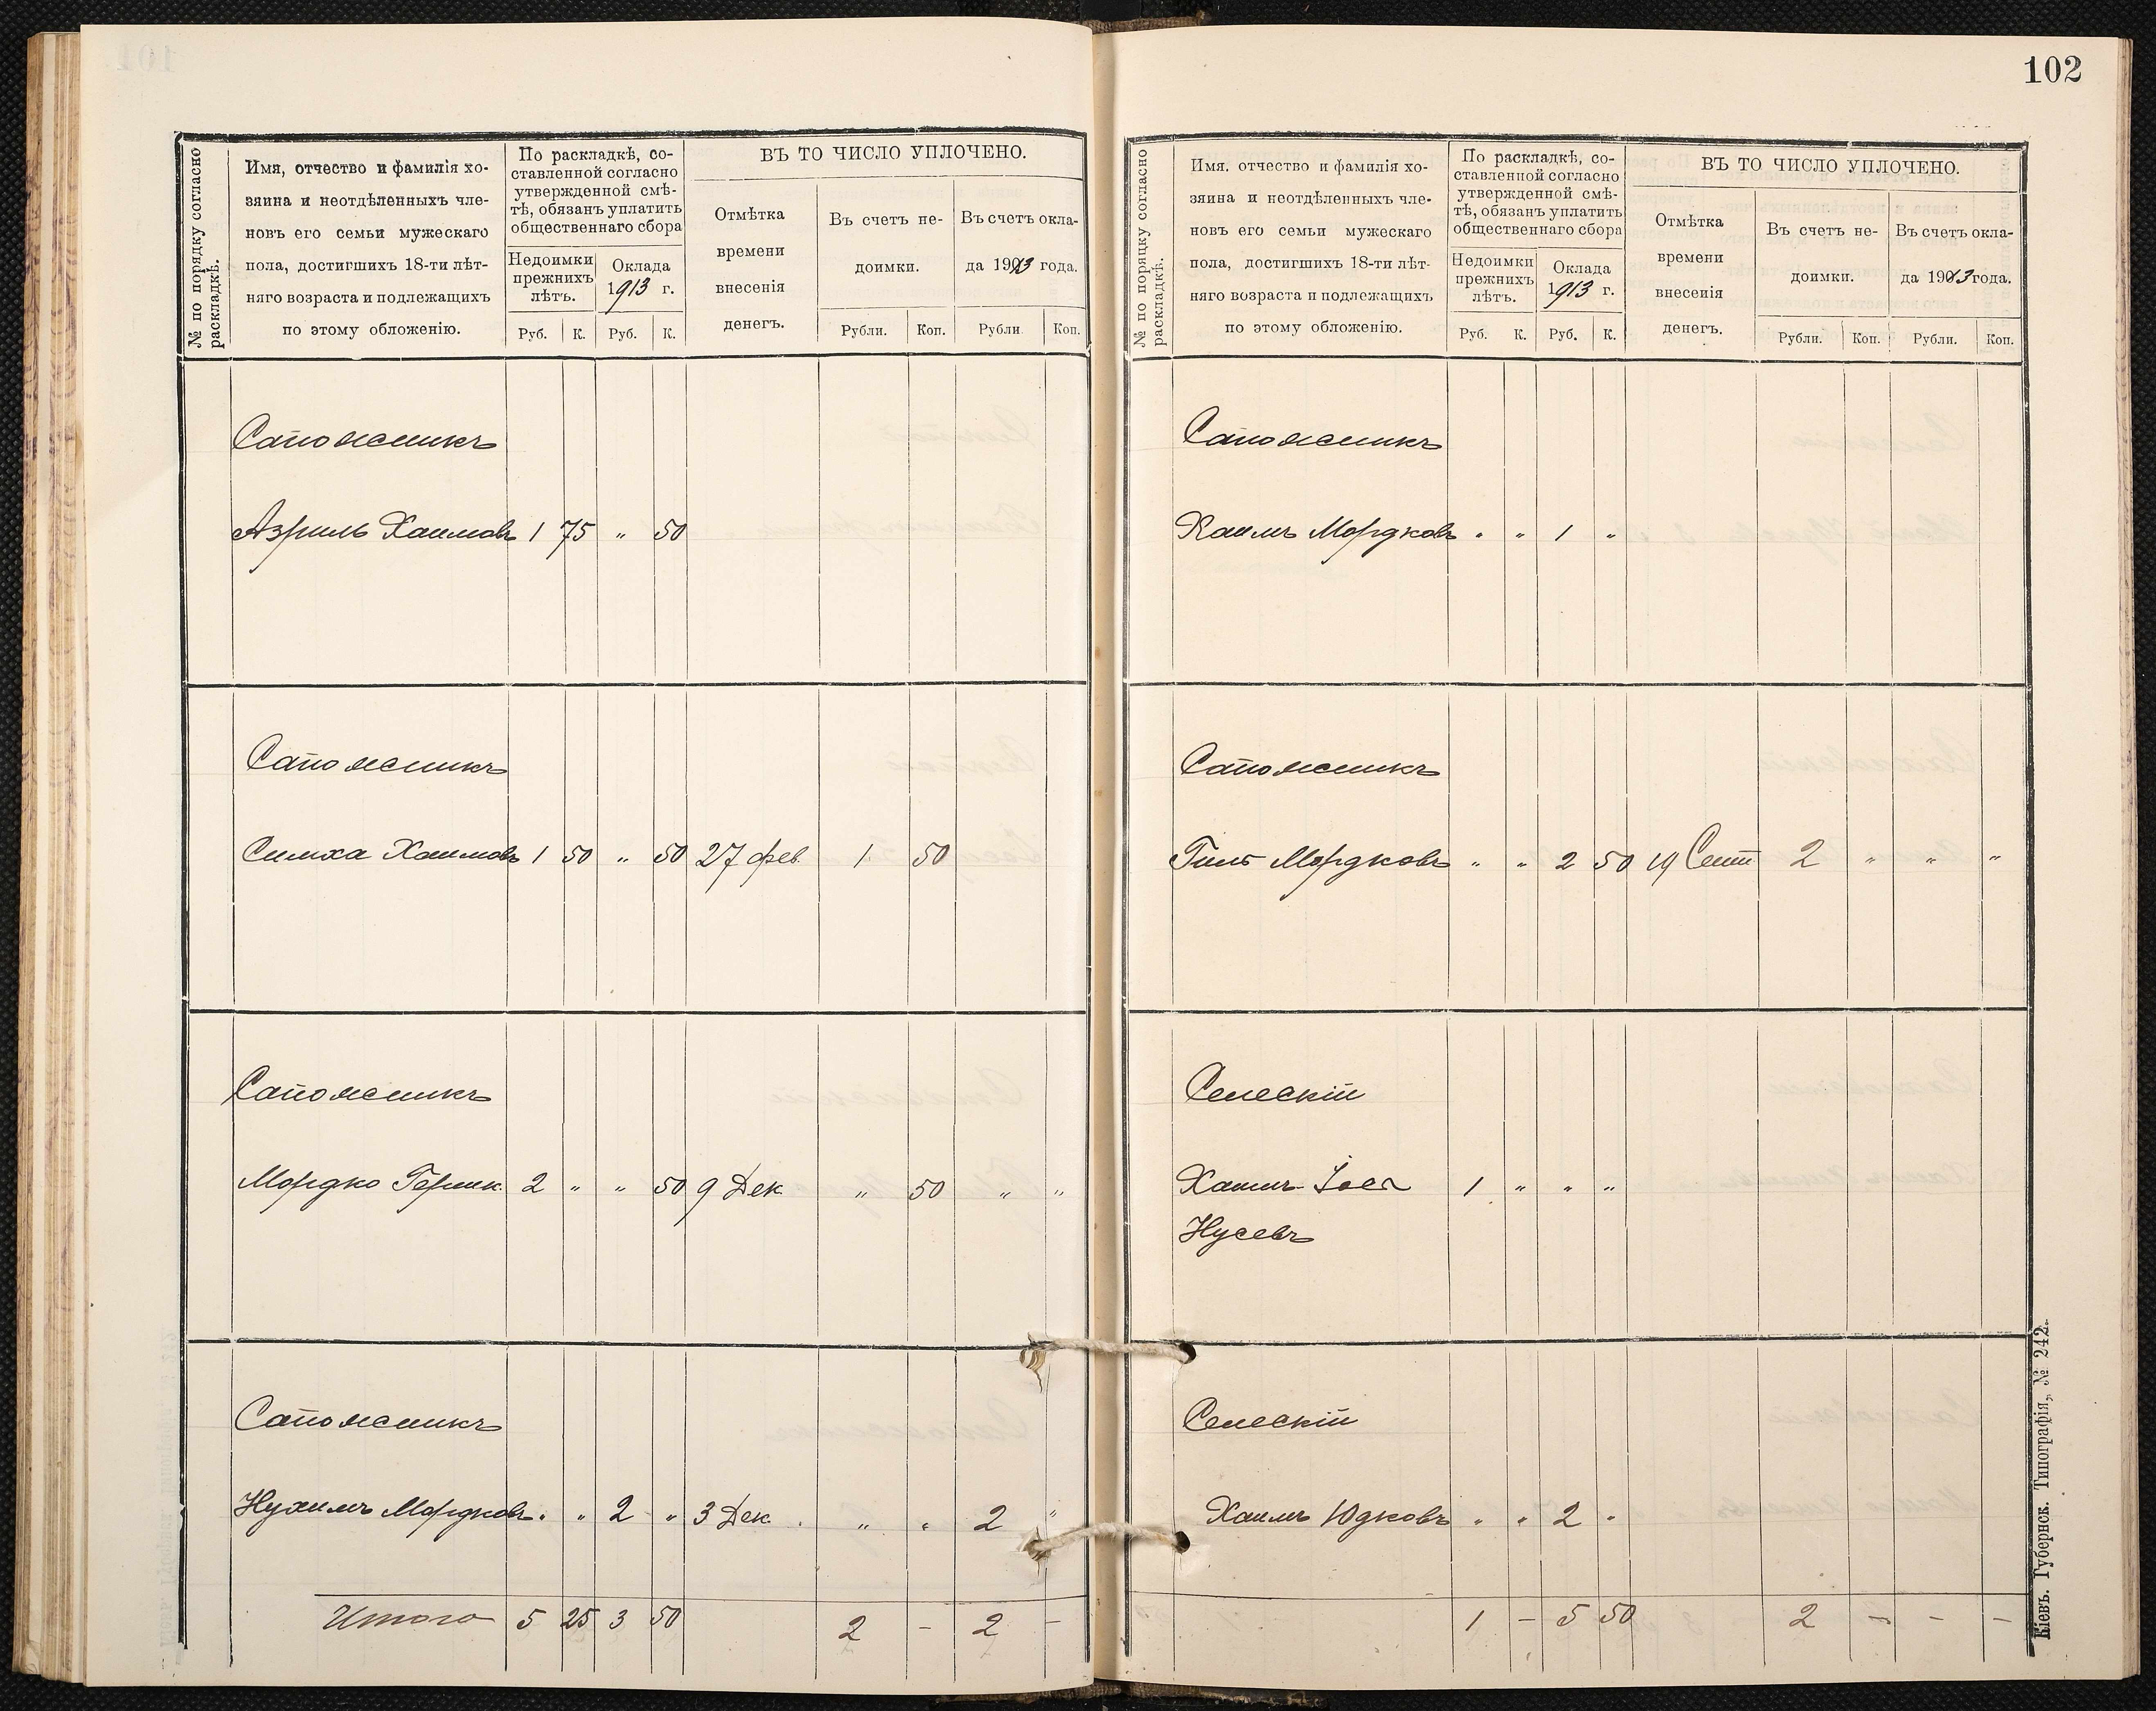 102
№ по порядку согласно раскладкѣ.
Имя, отчество и фамилія хо-
зяина и неотдѣленныхъ чле-
новъ его семьи мужескаго
пола, достигшихъ 18-ти лѣт-
няго возраста и подлежащихъ
по этому обложенію.
По раскладкѣ, со-
ставленной согласно
утвержденной смѣ-
тѣ, обязанъ уплатить
общественнаго сбора
Недоимки прежнихъ лѣтъ.
Оклада 1913 г.
Руб. К. Руб. К.
ВЪ ТО ЧИСЛО УПЛОЧЕНО.
Отмѣтка
времени
внесенія
денегъ.
Въ счетъ не-
доимки.
Въ счетъ окла-
да 1913 года.
Рубли. Коп. Рубли. Коп.
Сапожникъ
Азриль Хаимовъ 1 75 „ 50
Сапожникъ
Симха Хаимовъ 1 50 „ 50 27 фев. 1 50
Сапожникъ
Мордко Гершк. 2 „ „ 50 9 Дек. „ 50 „ „
Сапожникъ
Нухимъ Мордковъ „ „ 2 „ 3 Дек. „ „ 2 „
Итого 5 25 3 50 2 – 2 –
№ по порядку согласно раскладкѣ.
Имя, отчество и фамилія хо-
зяина и неотдѣленныхъ чле-
новъ его семьи мужескаго
пола, достигшихъ 18-ти лѣт-
няго возраста и подлежащихъ
по этому обложенію.
По раскладкѣ, со-
ставленной согласно
утвержденной смѣ-
тѣ, обязанъ уплатить
общественнаго сбора
Недоимки прежнихъ лѣтъ.
Оклада 1913 г.
Руб. К. Руб. К.
ВЪ ТО ЧИСЛО УПЛОЧЕНО.
Отмѣтка
времени
внесенія
денегъ.
Въ счетъ не-
доимки.
Въ счетъ окла-
да 1913 года.
Рубли. Коп. Рубли. Коп.
Сапожникъ
Хаимъ Мордковъ „ „ 1 „
Сапожникъ
Гиль Мордковъ „ „ 2 50 19 Сент 2 „ „ „
Селескій
Хаимъ-Іось 1 „ „ „
Нусевъ
Селескій
Хаимъ Юдковъ „ „ 2 „
1 – 5 50 2 – – –
Кіевъ. Губернск. Типографія, № 242.